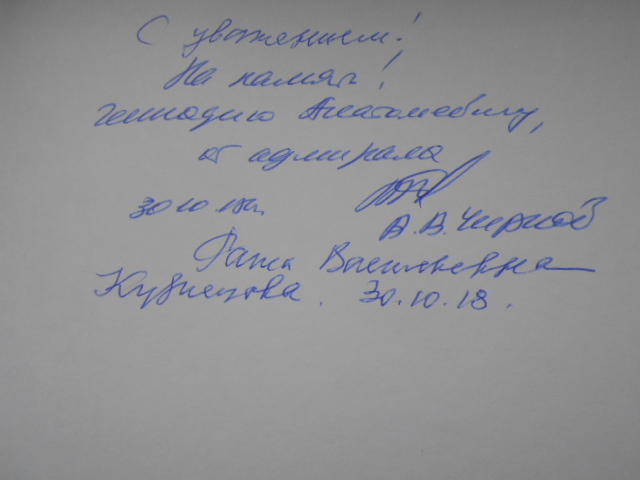 С уважением!
На память!
Геннадию Анатольевичу,
от адмирала
30 10 18г.
А.В. Чирков
Раиса Васильевна
Кузнецова. 30.10.18.